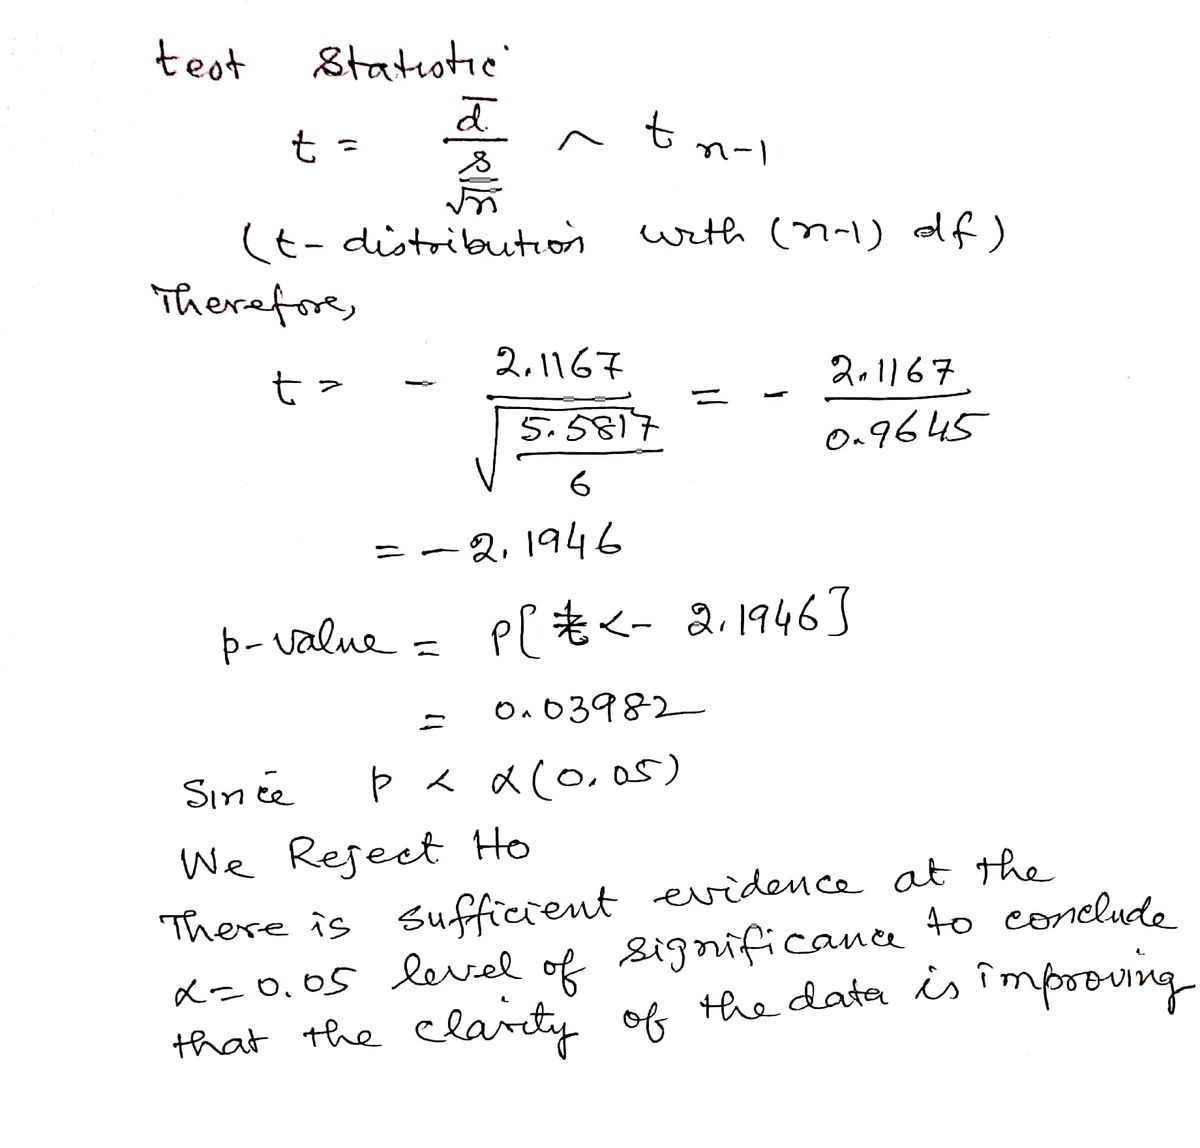 test statistic
t = d̄ / (s/√n) ~ t n-1
(t-distribution with (n-1) df)
Therefore,
t = - 2.1167 / √(5.5817/6) = - 2.1167 / 0.9645
= - 2.1946
p-value = P[t < - 2.1946]
= 0.03982
Since p < α(0.05)
We Reject Ho
There is sufficient evidence at the
α = 0.05 level of significance to conclude
that the clarity of the data is improving